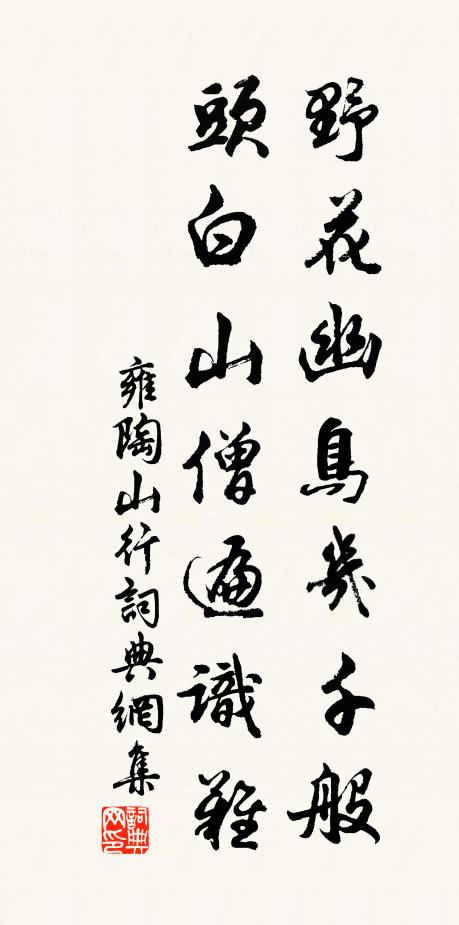 野花幽鳥幾千般
頭白山僧遍識難
雍陶山行詞典網集
詞典網印